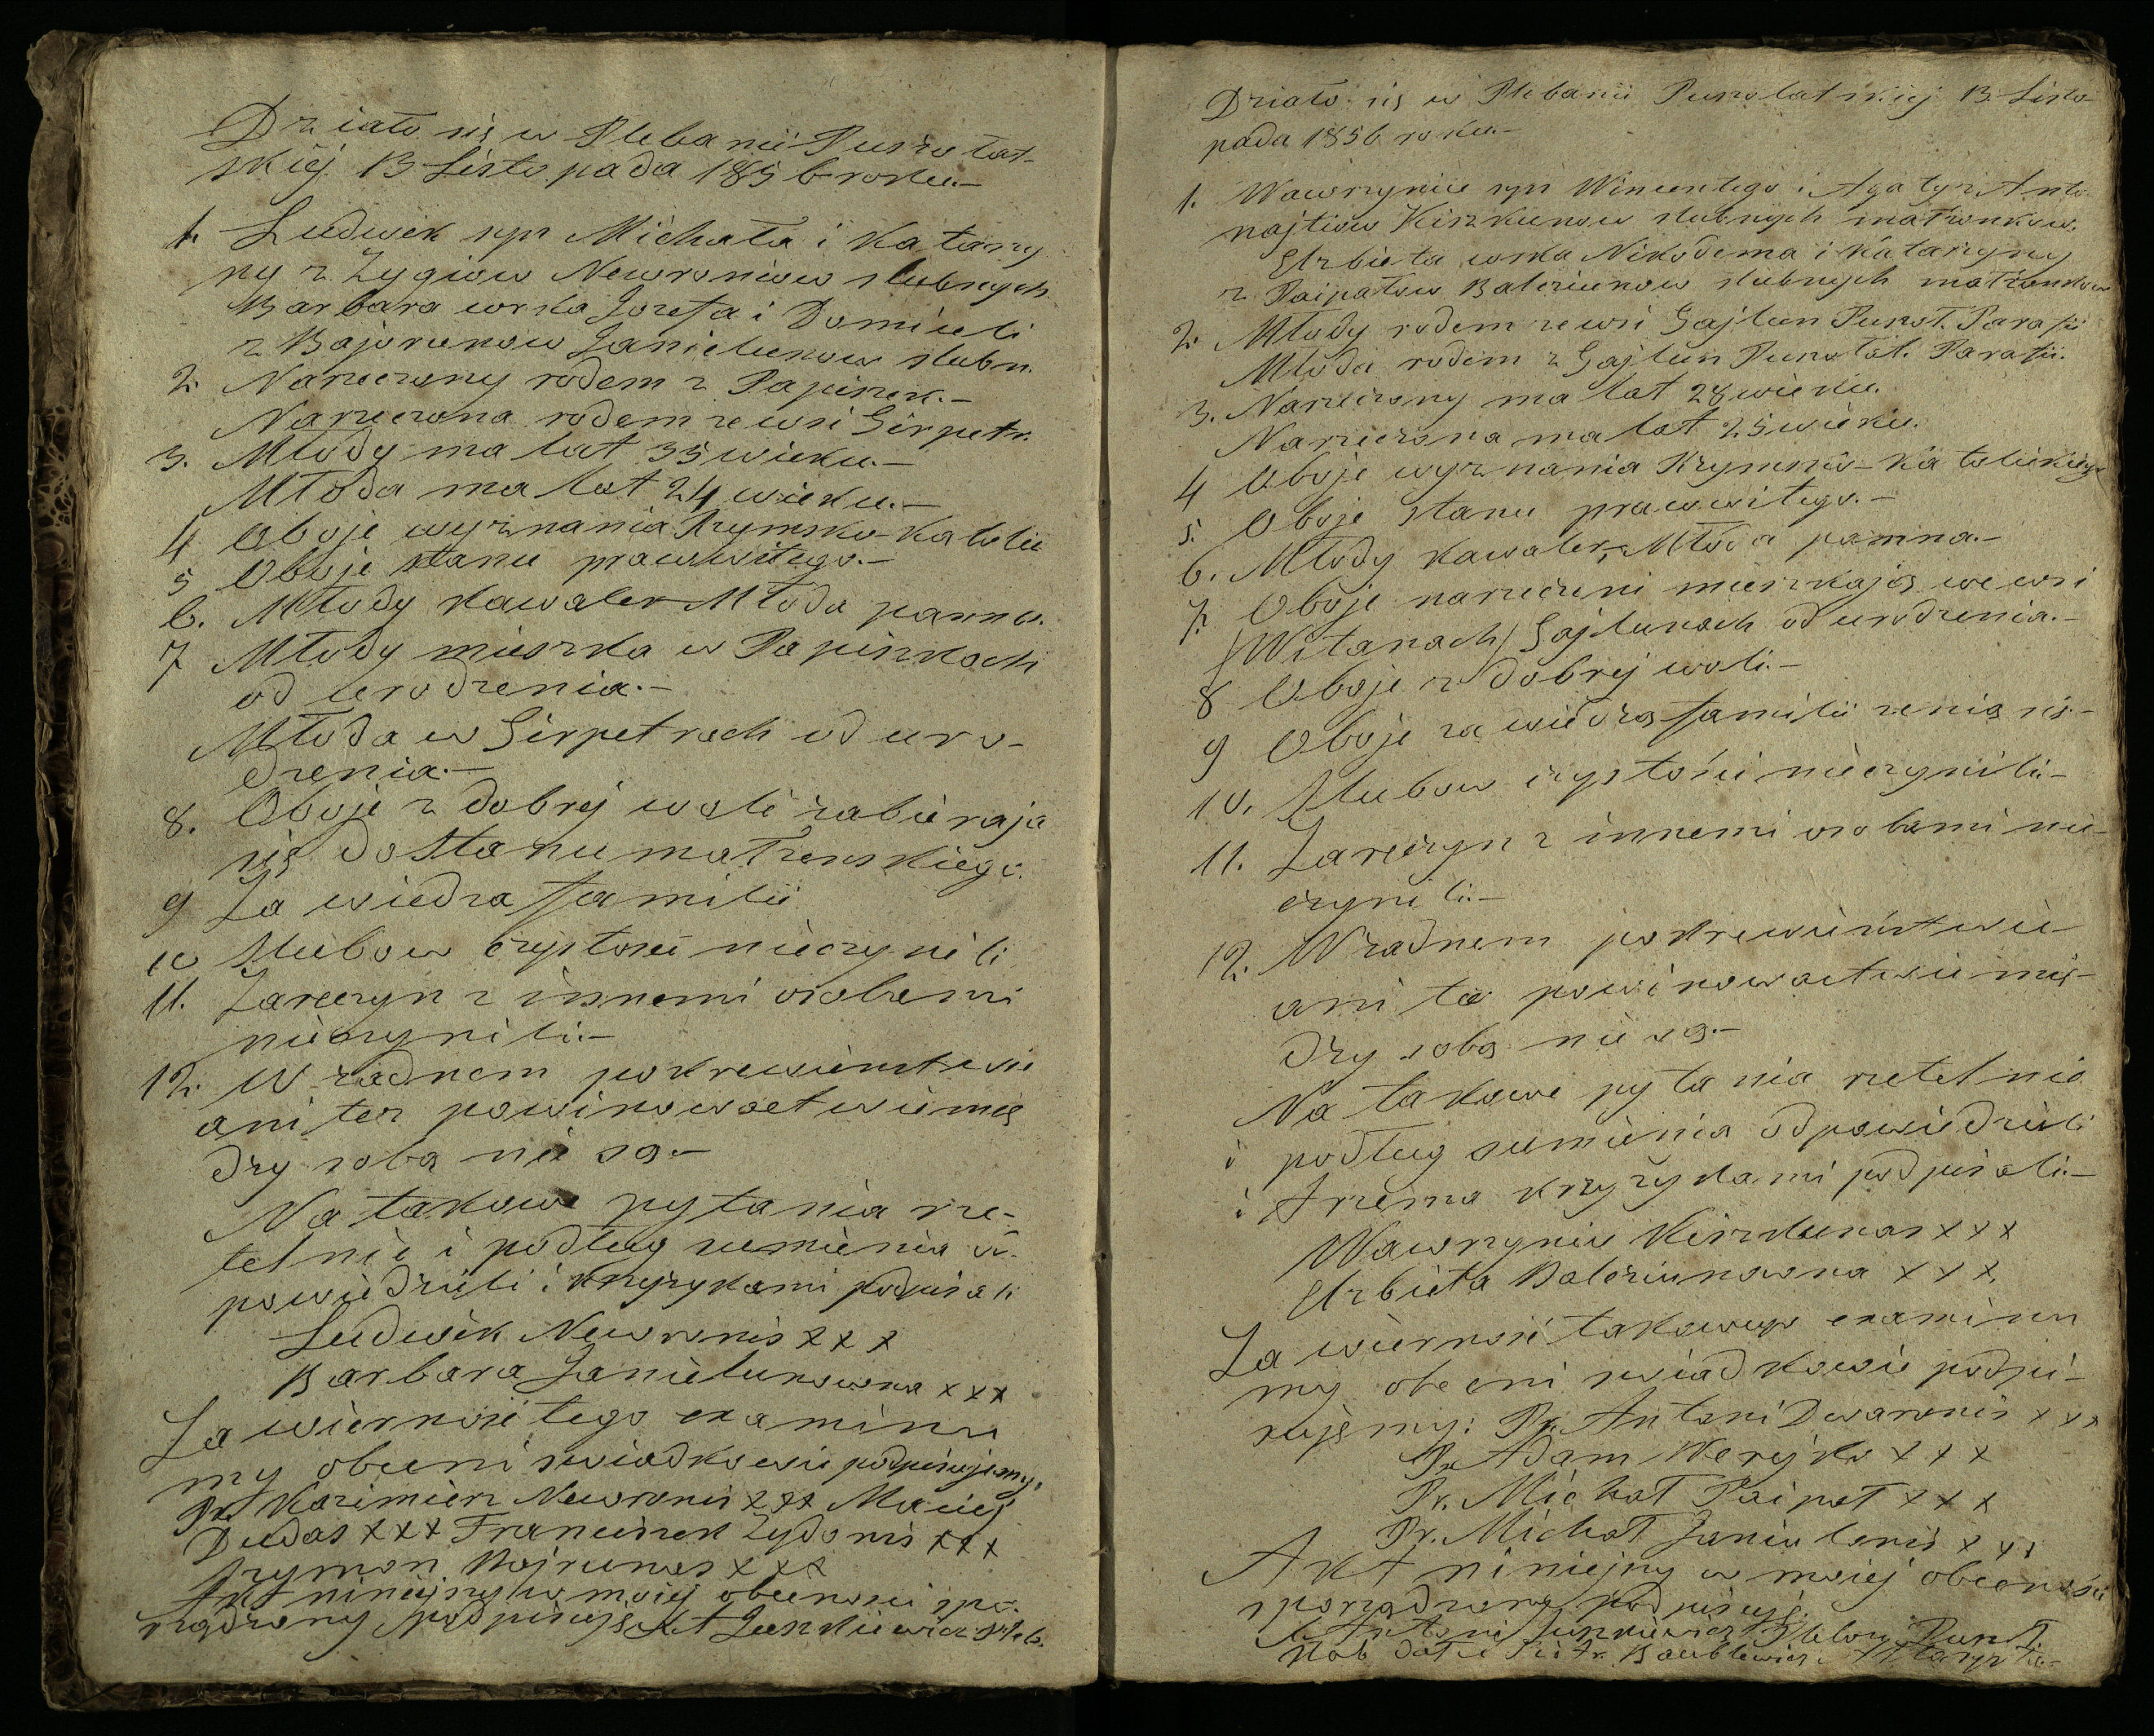 Działo się w Plebanii Puszołat-
skiej 13 Listopada 1856 roku.-
1. Ludwik syn Michała i Katarzy
ny z Zygiow Newroniow slubnych
Barbara corka Jozefa i Domiceli
z Bajorunow Janielunow slubn.
2. Narzeczony rodem z Papiszek.-
Narzeczona rodem ze wsi Girpetr.
3. Młody ma lat 35 wieku.-
Młoda ma lat 24 wieku.-
4 Oboje wyznania Rzymsko-Katolic
5 Oboje stanu prawowitego.-
6. Młody kawaler Młoda panna.
7 Młody mieszka w Papiszkach
od urodzenia.-
Młoda w Girpetrach od uro-
dzenia.-
8. Oboje z dobrej woli zabieraja
się do stanu małżenskiego.
9 Za wiedza familii
10 Slubow czystosci nieczynili
11. Zareczyn z innemi osobami
nieczynili.-
12. W żadnem pokrewienstwie
ani tez powinowactwie mię
dzy soba nie są-
Na takowe pytania rze-
telnie i podług sumienia od-
powiedzieli i krzyżykami podpisali
Ludwik Newronis x x x
Barbara Janielunowna x x x
Za wiernosć tego examinu
my obecni swiadkowie podpisujemy.
Pr. Kazimierz Newronis x x x Maciej
Dudas x x x Franciszek Zydonis x x x
Szymon Bojrunas x x x
Akt niniejszy w mojej obecnosci spo-
rządzony podpisuję X. A Junkiewicz Pleb.
Działo się w Plebanii Puszolatskiej 13 Listo-
pada 1856 roku.-
1. Wawrzyniec syn Wincentego i Agaty z Anto
najtisow Kiszkunow slubnych małżonkow.
Elzbieta corka Nikodema i Katarzyny
z Paipałow Balcziunow slubnych małżonkow
2. Młody rodem ze wsi Gajlun Puszoł. Parafii
Młoda rodem z Gajlun Puszołat. Parafii.
3. Narzeczony ma lat 28 wieku.
Narzeczona ma lat 25 wieku.
4 Oboje wyznania Rzymsko-Katolickiego
5. Oboje stanu prawowitego.-
6. Młody kawaler, Młoda panna.-
7. Oboje narzeczeni mieszkają we wsi
/Witanach/ Gajlunach od urodzenia.-
8 Oboje z dobrej woli.-
9 Oboje za wiedzą familii zenią się.-
10. Slubow czystości nieczynili-
11. Zaręczyn z innemi osobami nie-
czynili.-
12. W zadnem pokrewieństwie
ani tez powinowactwie mię-
dzy sobą nie są-
Na takowe pytania rzetelnie
i podług sumienia odpowiedzieli
i trzema krzyżykami podpisali.-
Wawrzyniec Kiszkunas x x x
Elzbieta Balcziunowna x x x,
Za wiernosć takowego examinu
my obecni swiadkowie podpi-
sujemy: Pr. Antoni Dwaronis x x x
Pr. Adam Werejko x x x
Pr. Michał Paipał x x x
Pr. Michał x x x
Akt niniejszy w mojej obecnosci
sporządzony podpisuję.
X. Antoni Junkiewicz Pleban Puszoł.
Slub dał X Piotr